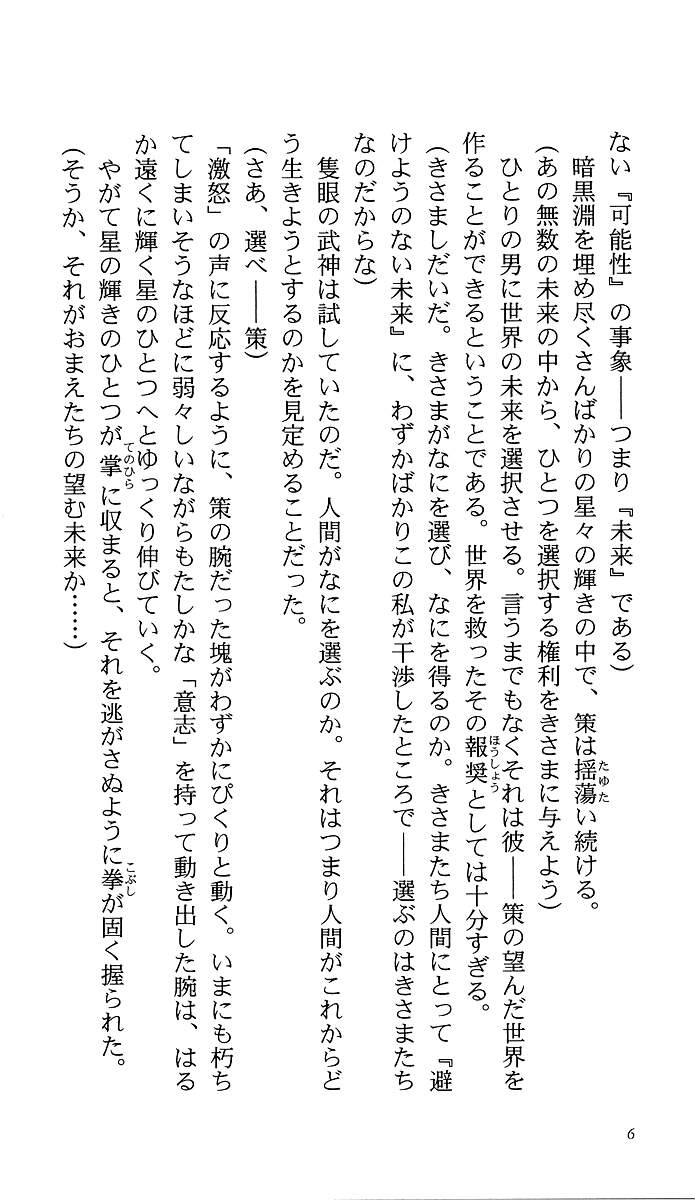 ない『可能性』の事象――つまり『未来』である)
　暗黒淵を埋め尽くさんばかりの星々の輝きの中で、策は揺蕩い続ける。
(あの無数の未来の中から、ひとつを選択する権利をきさまに与えよう)
　ひとりの男に世界の未来を選択させる。言うまでもなくそれは彼――策の望んだ世界を
作ることができるということである。世界を救ったその報奨としては十分すぎる。
(きさましだいだ。きさまがなにを選び、なにを得るのか。きさまたち人間にとって『避
けようのない未来』に、わずかばかりこの私が干渉したところで――選ぶのはきさまたち
なのだからな)
　隻眼の武神は試していたのだ。人間がなにを選ぶのか。それはつまり人間がこれからど
う生きようとするのかを見定めることだった。
(さあ、選べ――策)
「激怒」の声に反応するように、策の腕だった塊がわずかにぴくりと動く。いまにも朽ち
てしまいそうなほどに弱々しいながらもたしかな「意志」を持って動き出した腕は、はる
か遠くに輝く星のひとつへとゆっくり伸びていく。
　やがて星の輝きのひとつが掌に収まると、それを逃がさぬように拳が固く握られた。
(そうか、それがおまえたちの望む未来か……)
たゆた
ほうしょう
てのひら
こぶし
6